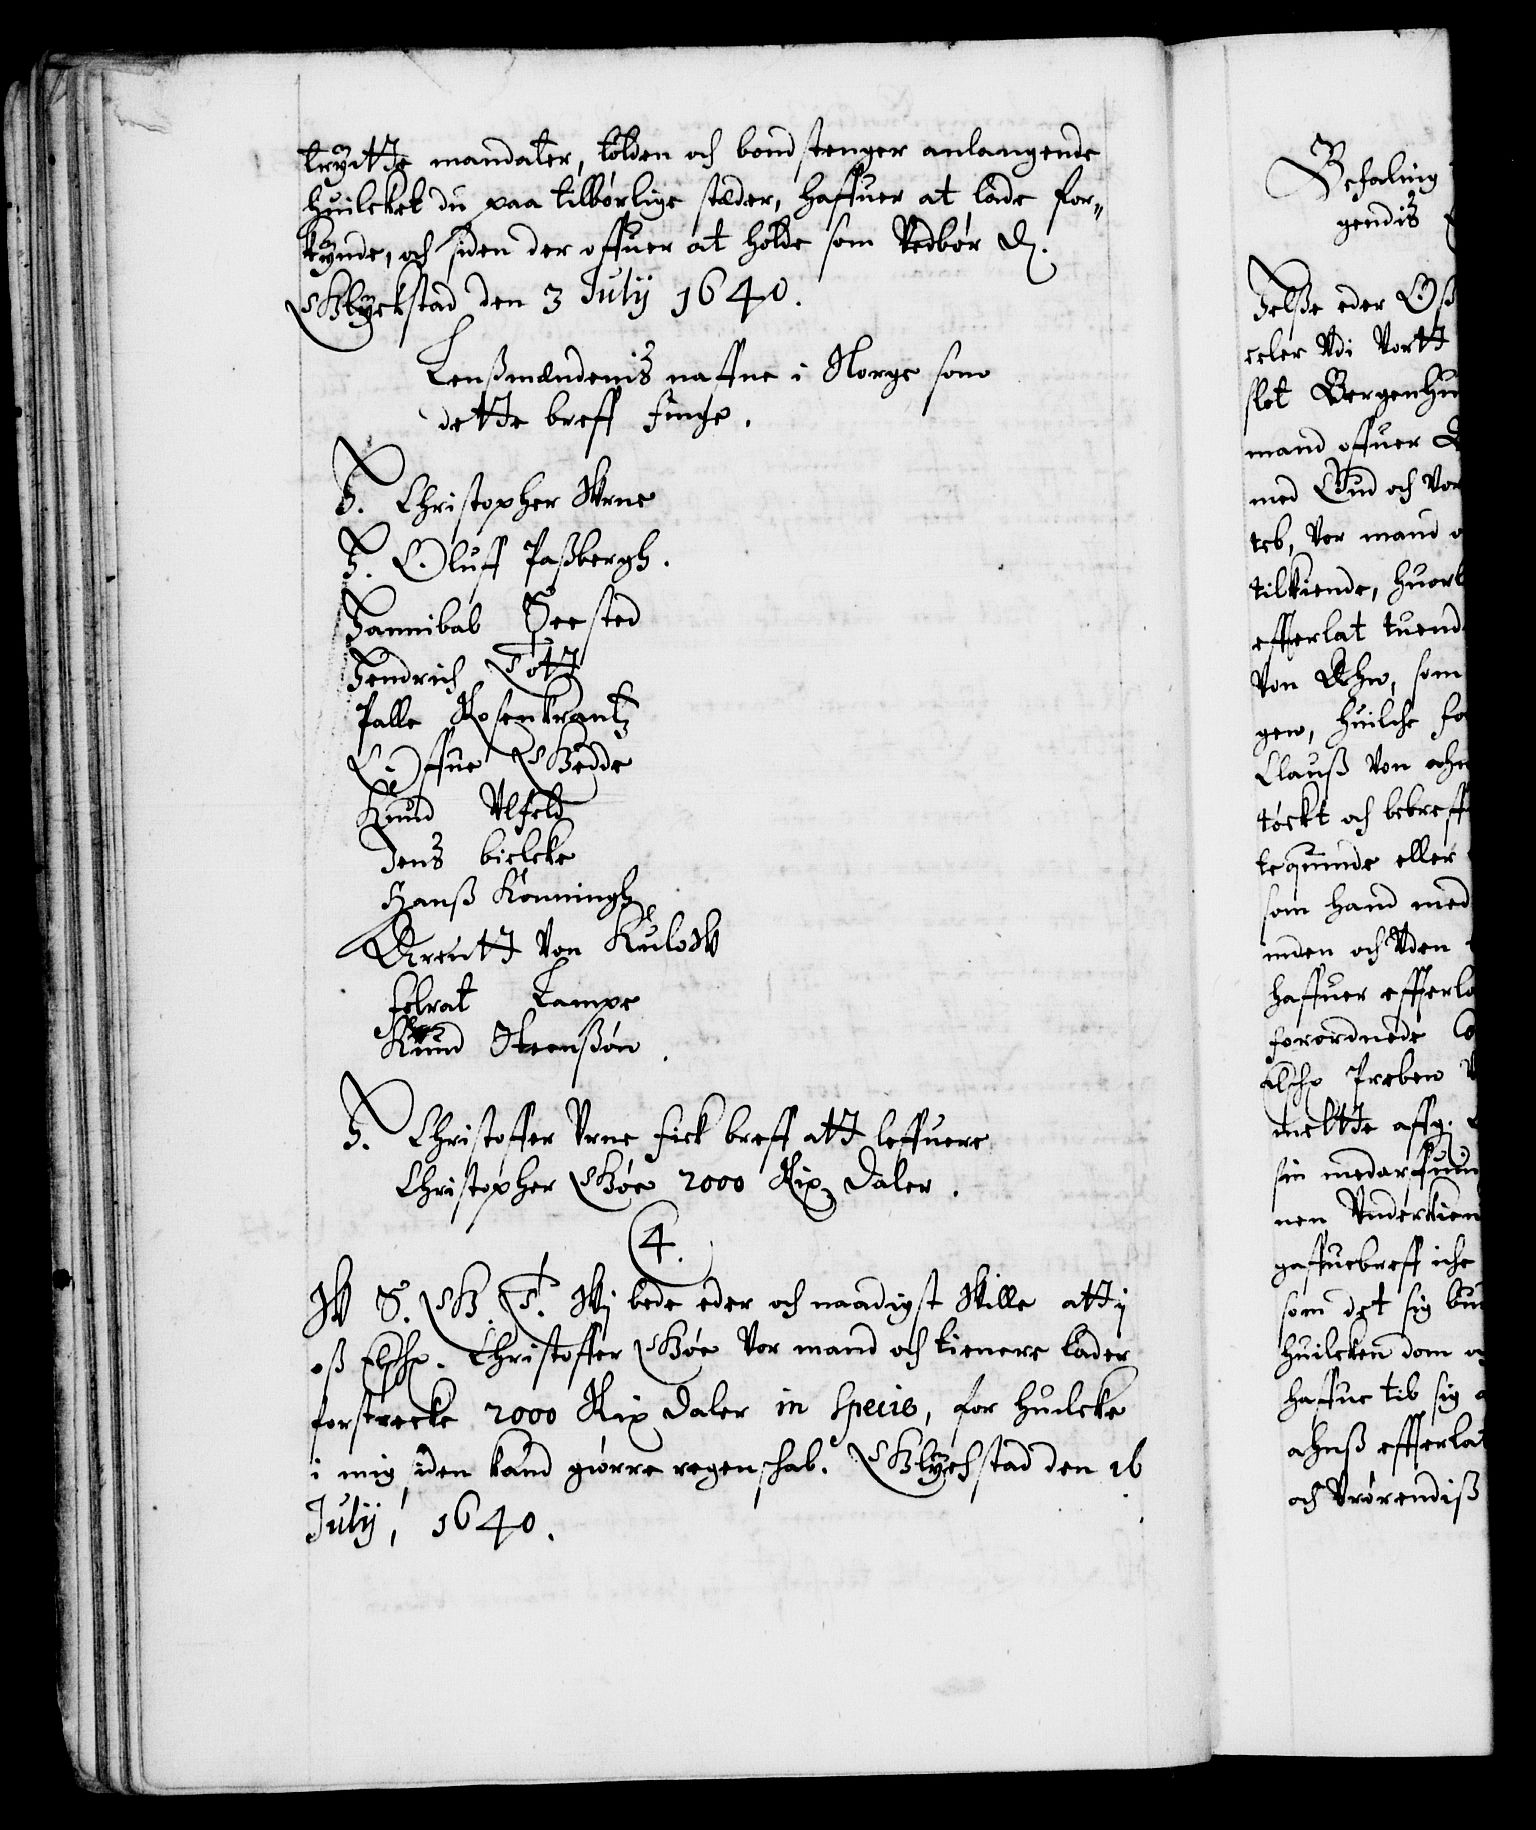 tryckte mandater, tolden och bondstenger anlangende
huilcket du paa tilbørlige stæder, haffuer at lade for-
kynde, och siden der offuer at holde som Vedbør
Glyckstad den 3 Julij 1640.
Lenßmændenis naffne i Norge som
dette breff finge.
H. Christopher Wrne
H. Oluff Paßbergh.
Hannibal Seested
Hendrich Tott
Palle Rosenkrantz
Offue Gedde
Knud Vlfeld
Jens bielcke
Hanß Konningh
Arentt von Kulow
felrat Lampe
Knud Steenßøn.
H. Christoffer Vrne fick breff att leffuere
Christopher Gøe 2000 Rix Daler.
4.
W S. G. T. Wj bede eder och naadigst Wille att j
oß Elsche. Christoffer Gøe Vor mand och tienere lader
forstrecke 2000 Rix Daler in specie, for huilcke
i mig siden kand giørre regenschab. Glychstad den 16
Julij, 1640.
Befaling
gendis
Helße eder
eeler Vdi Vortt
slot Bergenhu
mand offuer
med Gud och Vor
teb, Vor mand
tilkiende, huorl
efferlat tuend
Von Ahn, som
gen, huilche fo
Clauß Von ahn
tøckt och bebreff
tequinde eller
som hand med
inden och Vden
haffuer efferla
forordnede
Elsche Preben
meltte affg.
sin medarfuin
nen Vnderkien
gaffuebreff iche
som det sig bu
huilcken dom
haffue til sig
ahnß efferlat
och Vrørendiß